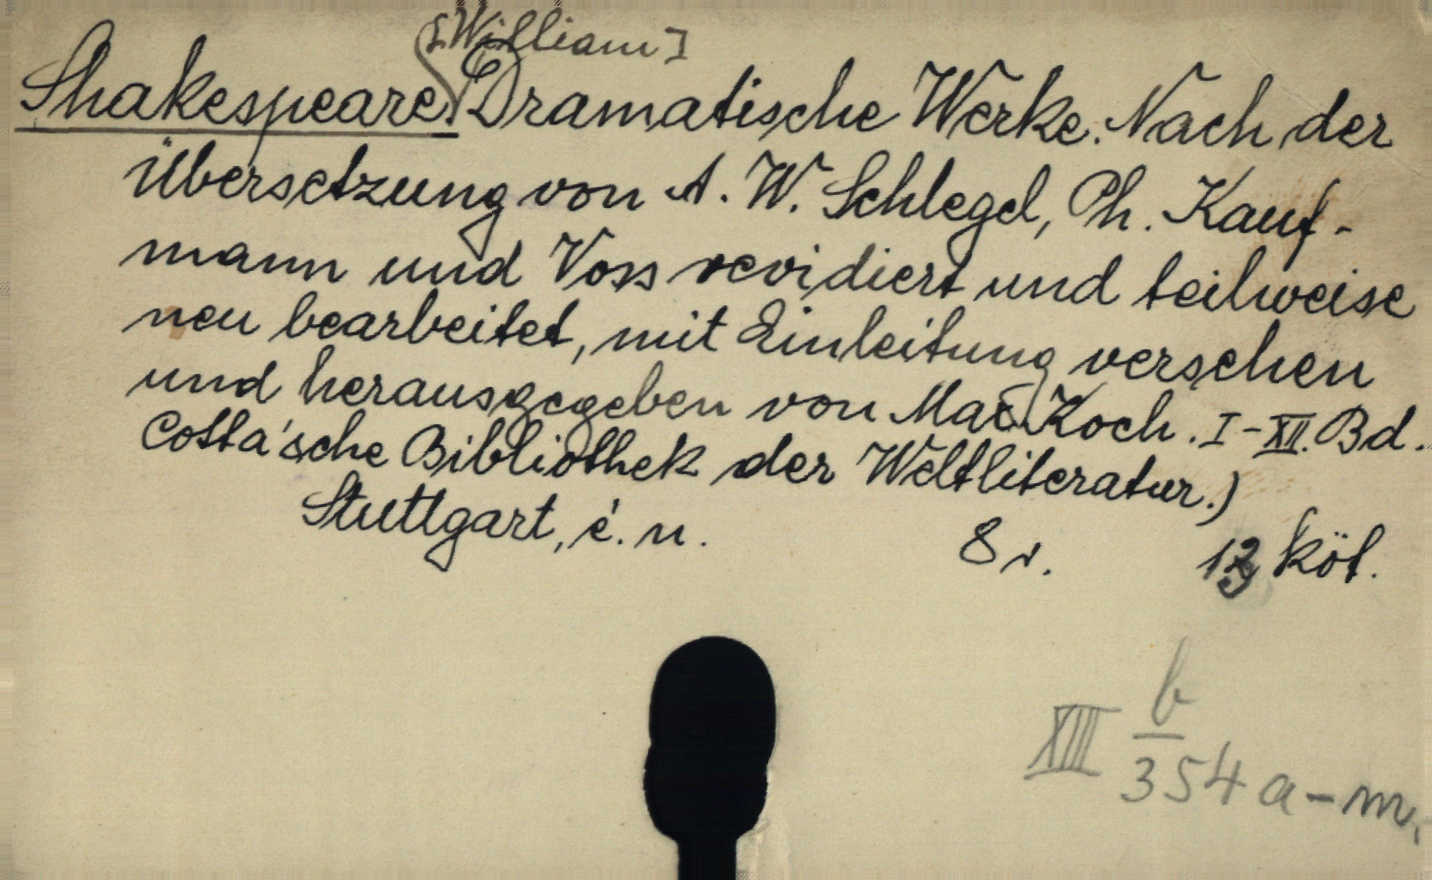 Shakespeare [William] Dramatische Werke. Nach der
Übersetzung von A. W. Schlegel, Ph. Kauf-
mann und Voss revidiert und teilweise
neu bearbeitet, mit Einleitung versehen
und herausgegeben von Max Koch. I-XII. Bd.
Cotta'sche Bibliothek der Weltliteratur.)
Stuttgart, é. n. 8 r. köt.
XIII b/354 a-m.